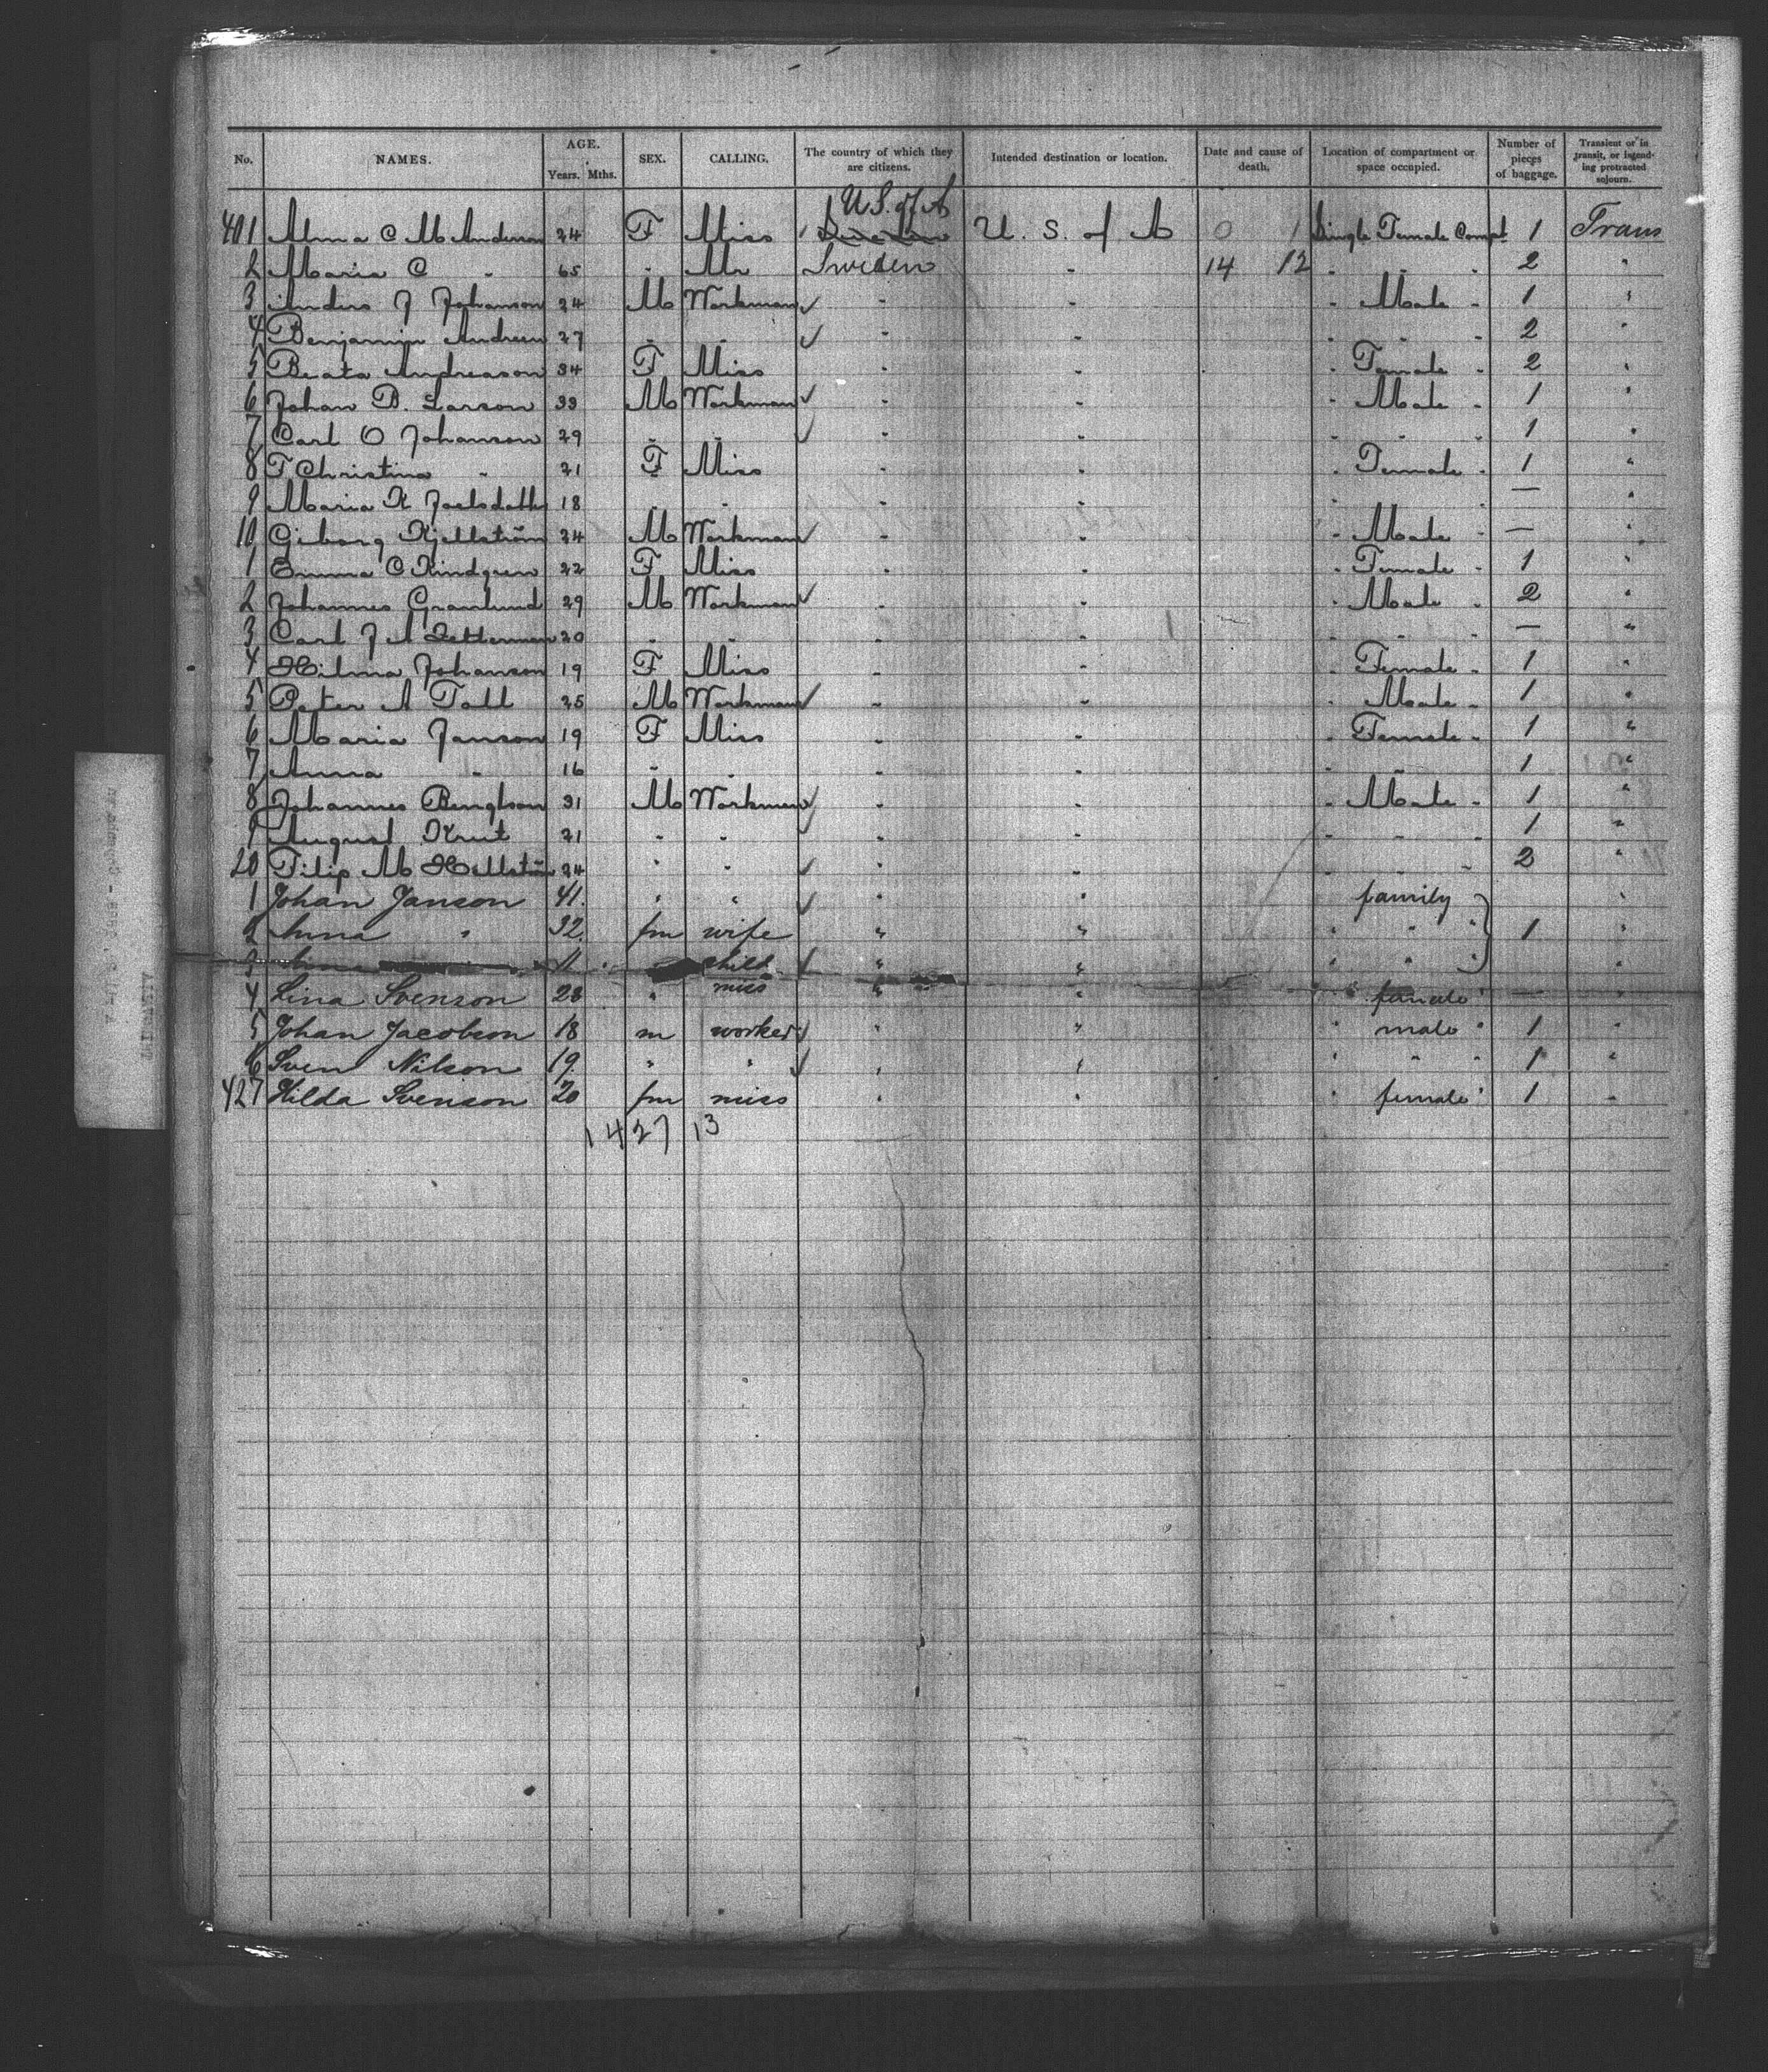 No. NAMES. AGE. Years. Mths. SEX. CALLING. The country of which they are citizens. Intended destination or location. Date and cause of death. Location of compartment or space occupied. Number of pieces of baggage. Transient or in transit, or intending protracted sojourn.
U.S. of A
401 Alma C M Anderson 24 F Miss U. S. of A 0 1 Single Female Compt 1 Trans
2 Maria C " 65 " Mr Sweden " 14 12 " " " 2 "
3 Anders J Johanson 24 M Workman ✓ " " " Male " 1 "
4 Benjamin Andreen 27 " " ✓ " " " " " 2 "
5 Beata Andreason 34 F Miss " " " Female " 2 "
6 Johan B. Larson 33 M Workman ✓ " " " Male " 1 "
7 Carl O Johanson 29 " " ✓ " " " " " 1 "
8 F Christina " 21 F Miss " " " Female " 1 "
9 Maria K 18 " " " " " " " — "
10 Kjellström 24 M Workman ✓ " " " Male " — "
1 Emma C 22 F Miss " " " Female " 1 "
2 Johannes Granlund 29 M Workman ✓ " " " Male " 2 "
3 Carl J A 20 " " " " " " " — "
4 Hilma Johanson 19 F Miss " " " Female " 1 "
5 Peter A Tall 25 M Workman ✓ " " " Male " 1 "
6 Maria Janson 19 F Miss " " " Female " 1 "
7 Anna " 16 " " " " " " " 1 "
8 Johannes Bengtson 31 M Workman ✓ " " " Male " 1 "
9 August 21 " " " " " " " 1 "
20 Filip M Hellström 24 " " ✓ " " " 2 "
1 Johan Janson 41. " " ✓ " " family "
2 Anna " 32. fm wife " " " " " 1 "
3 11 child ✓ " " " " "
4 Lina Svenson 28 " miss " " " female " — "
5 Johan Jacobson 18 m worker ✓ " " " male " 1 "
6 Sven Nilson 19. " " ✓ " " " " " 1 "
427 Hilda Svenson 20 fm miss " " " female " 1 "
14 27 13